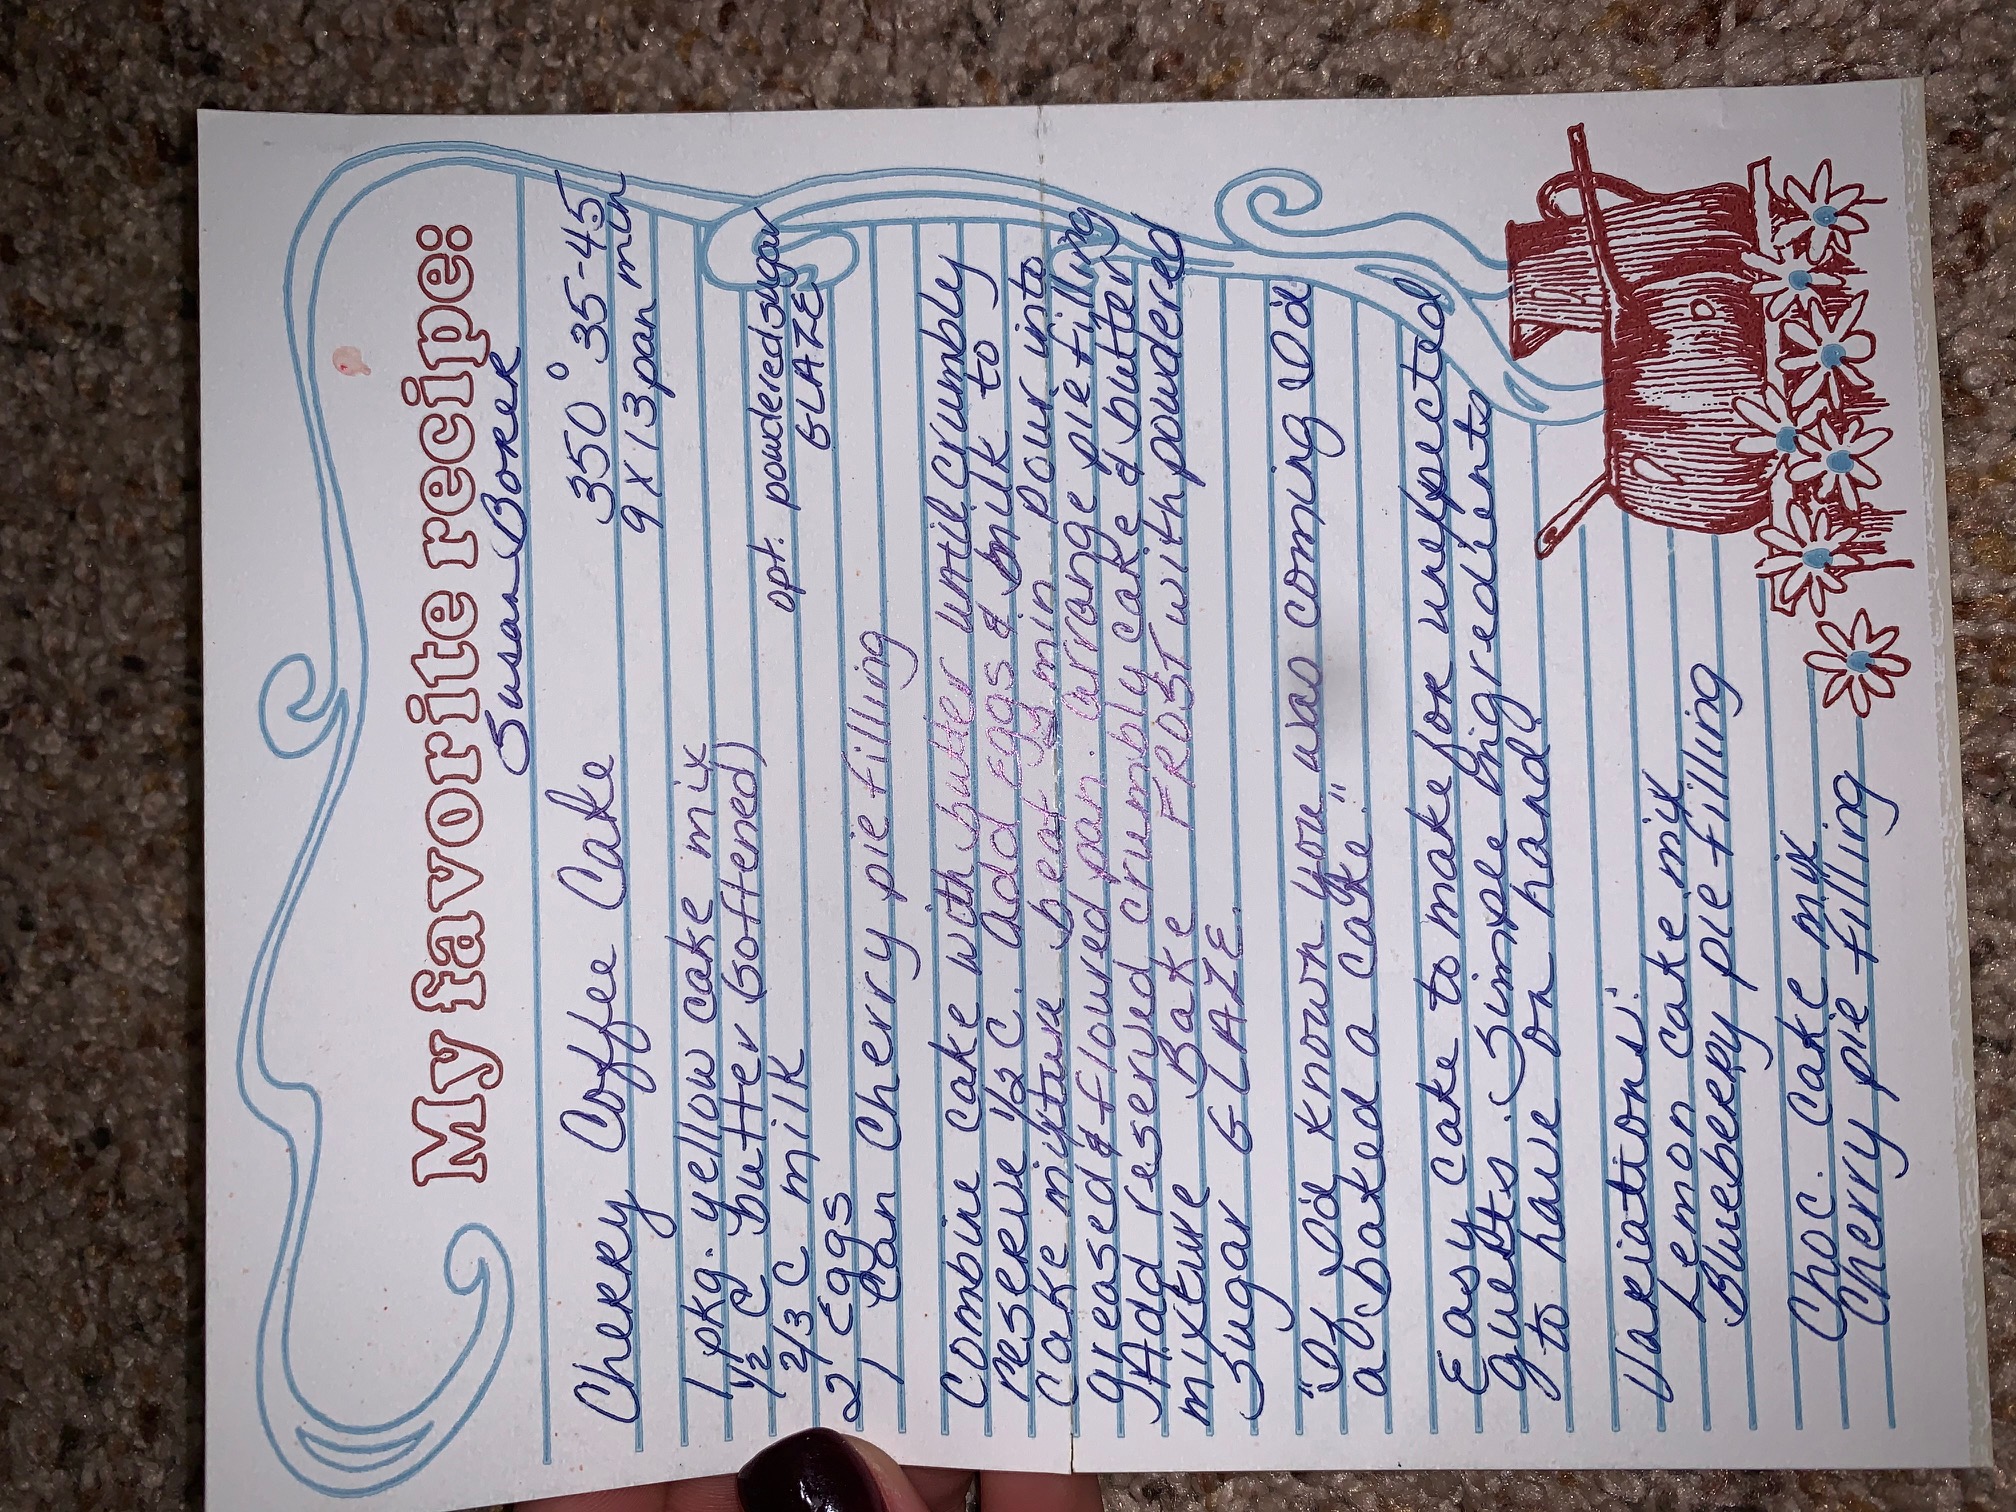 My favorite recipe:
Susan Borer
Cherry Coffee Cake
350° 35-45 min
9 X 13 pan
1 pkg. yellow cake mix
1/2 C butter (softened)
2/3 C milk
opt. powdered sugar
GLAZE
2 Eggs
1 can Cherry pie filling
Combine cake with butter until crumbly
reserve 1/2 C. Add Eggs & milk to
cake mixture beat 2 min pour into
greased & floured pan. Arrange pie filling
Add reserved crumbly cake & butter
mixture Bake FROST with powdered
sugar GLAZE.
"If I'd known you was coming I'd
a baked a cake."
Easy cake to make for unexpected
guests. Simple ingredients
to have on hand.
Variations:
Lemon cake mix
Blueberry pie filling
Choc. cake mix
Cherry pie filling